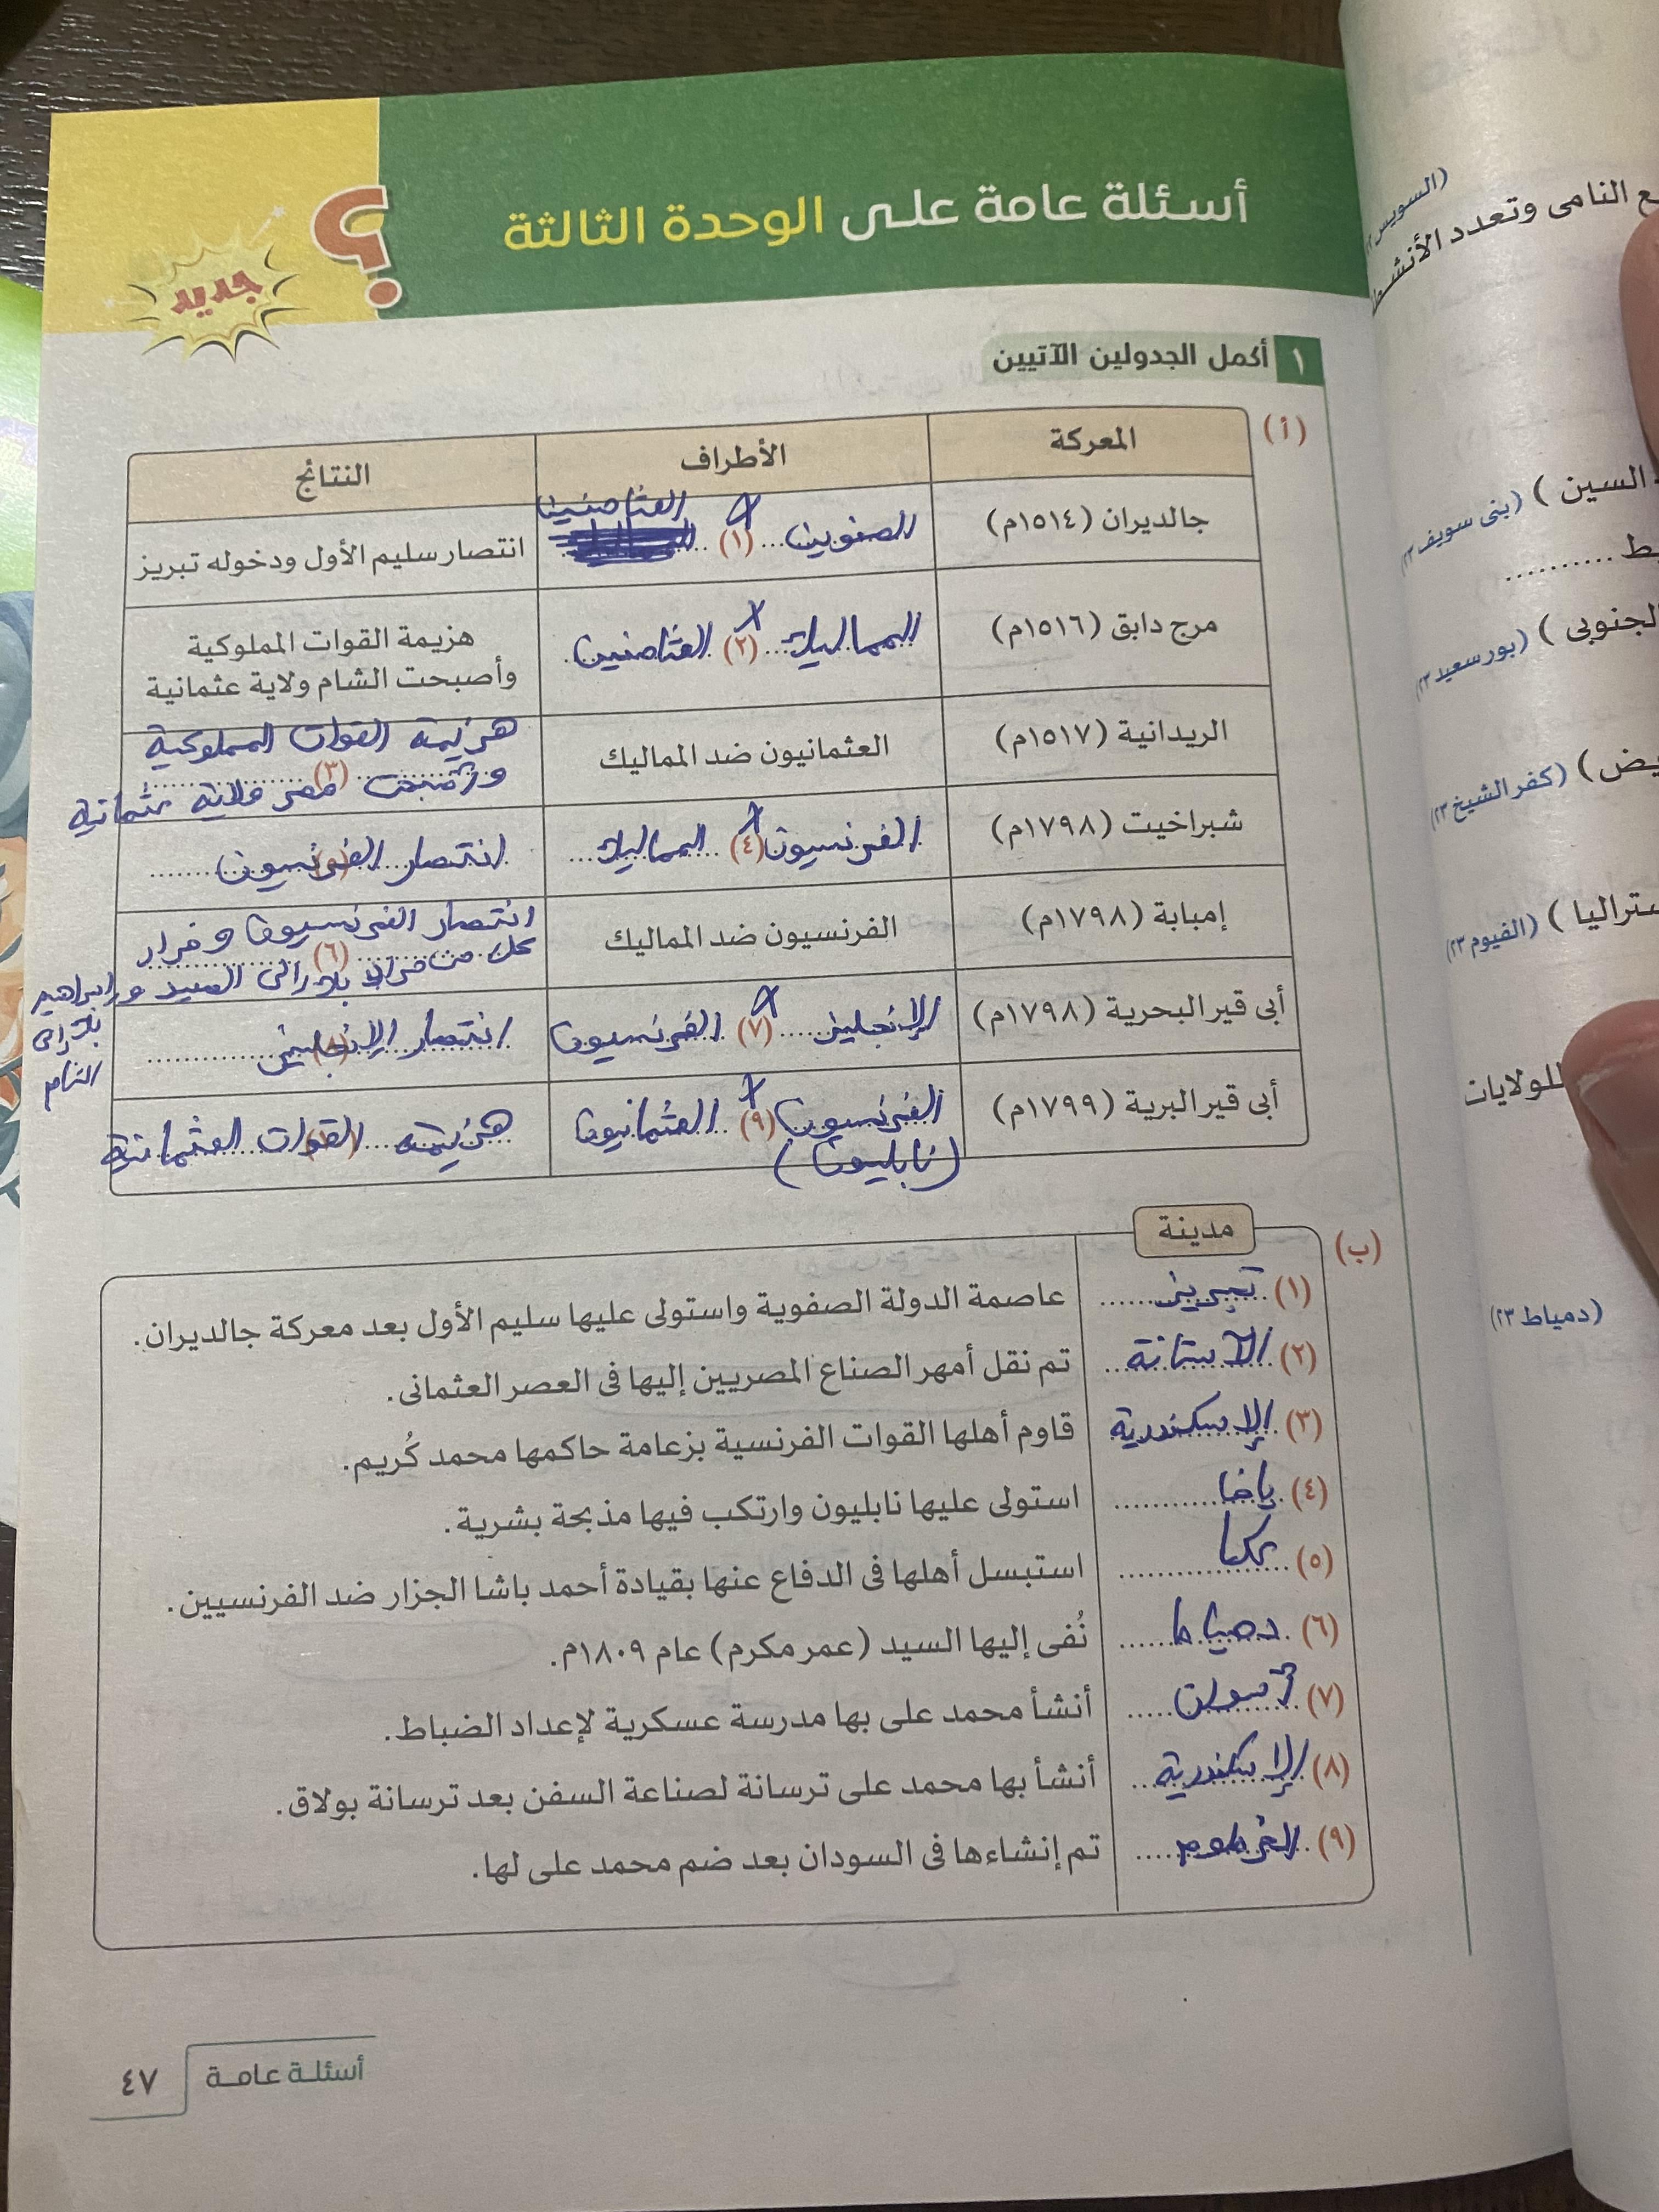 أسئلة عامة على الوحدة الثالثة
؟
جديد
١ أكمل الجدولين الآتيين
(أ)
المعركة الأطراف النتائج
جالديران (١٥١٤م) الصفويين × (١) العثمانيين انتصار سليم الأول ودخوله تبريز
مرج دابق (١٥١٦م) المماليك × (٢) العثمانيين هزيمة القوات المملوكية
وأصبحت الشام ولاية عثمانية
الريدانية (١٥١٧م) العثمانيون ضد المماليك هزيمة القوات المملوكية
(٣) وأصبحت مصر ولاية عثمانية
شبراخيت (١٧٩٨م) الفرنسيون × (٤) المماليك انتصار الفرنسيون
إمبابة (١٧٩٨م) الفرنسيون ضد المماليك انتصار الفرنسيون وفرار
(٦) كل من مراد بك إلى الصعيد وإبراهيم
بك إلى
الشام
أبى قير البحرية (١٧٩٨م) الإنجليز × (٧) الفرنسيون انتصار الإنجليز
أبى قير البرية (١٧٩٩م) الفرنسيون × (٩) العثمانيون هزيمة القوات العثمانية
(نابليون)
(ب)
مدينة
(١) تبريز عاصمة الدولة الصفوية واستولى عليها سليم الأول بعد معركة جالديران.
(٢) الآستانة تم نقل أمهر الصناع المصريين إليها فى العصر العثمانى.
(٣) الإسكندرية قاوم أهلها القوات الفرنسية بزعامة حاكمها محمد كُريم.
(٤) يافا استولى عليها نابليون وارتكب فيها مذبحة بشرية.
(٥) عكا استبسل أهلها فى الدفاع عنها بقيادة أحمد باشا الجزار ضد الفرنسيين.
(٦) دمياط نُفى إليها السيد (عمر مكرم) عام ١٨٠٩م.
(٧) أسوان أنشأ محمد على بها مدرسة عسكرية لإعداد الضباط.
(٨) الإسكندرية أنشأ بها محمد على ترسانة لصناعة السفن بعد ترسانة بولاق.
(٩) الخرطوم تم إنشاءها فى السودان بعد ضم محمد على لها.
أسئلة عامة
٤٧
(السويس
ع النامى وتعدد الأنشط
السين) (بنى سويف ٢٣)
ط
لجنوبى) (بورسعيد ٢٣)
يض) (كفر الشيخ ٢٣)
ستراليا) (الفيوم ٢٣)
للولايات
(دمياط ٢٣)